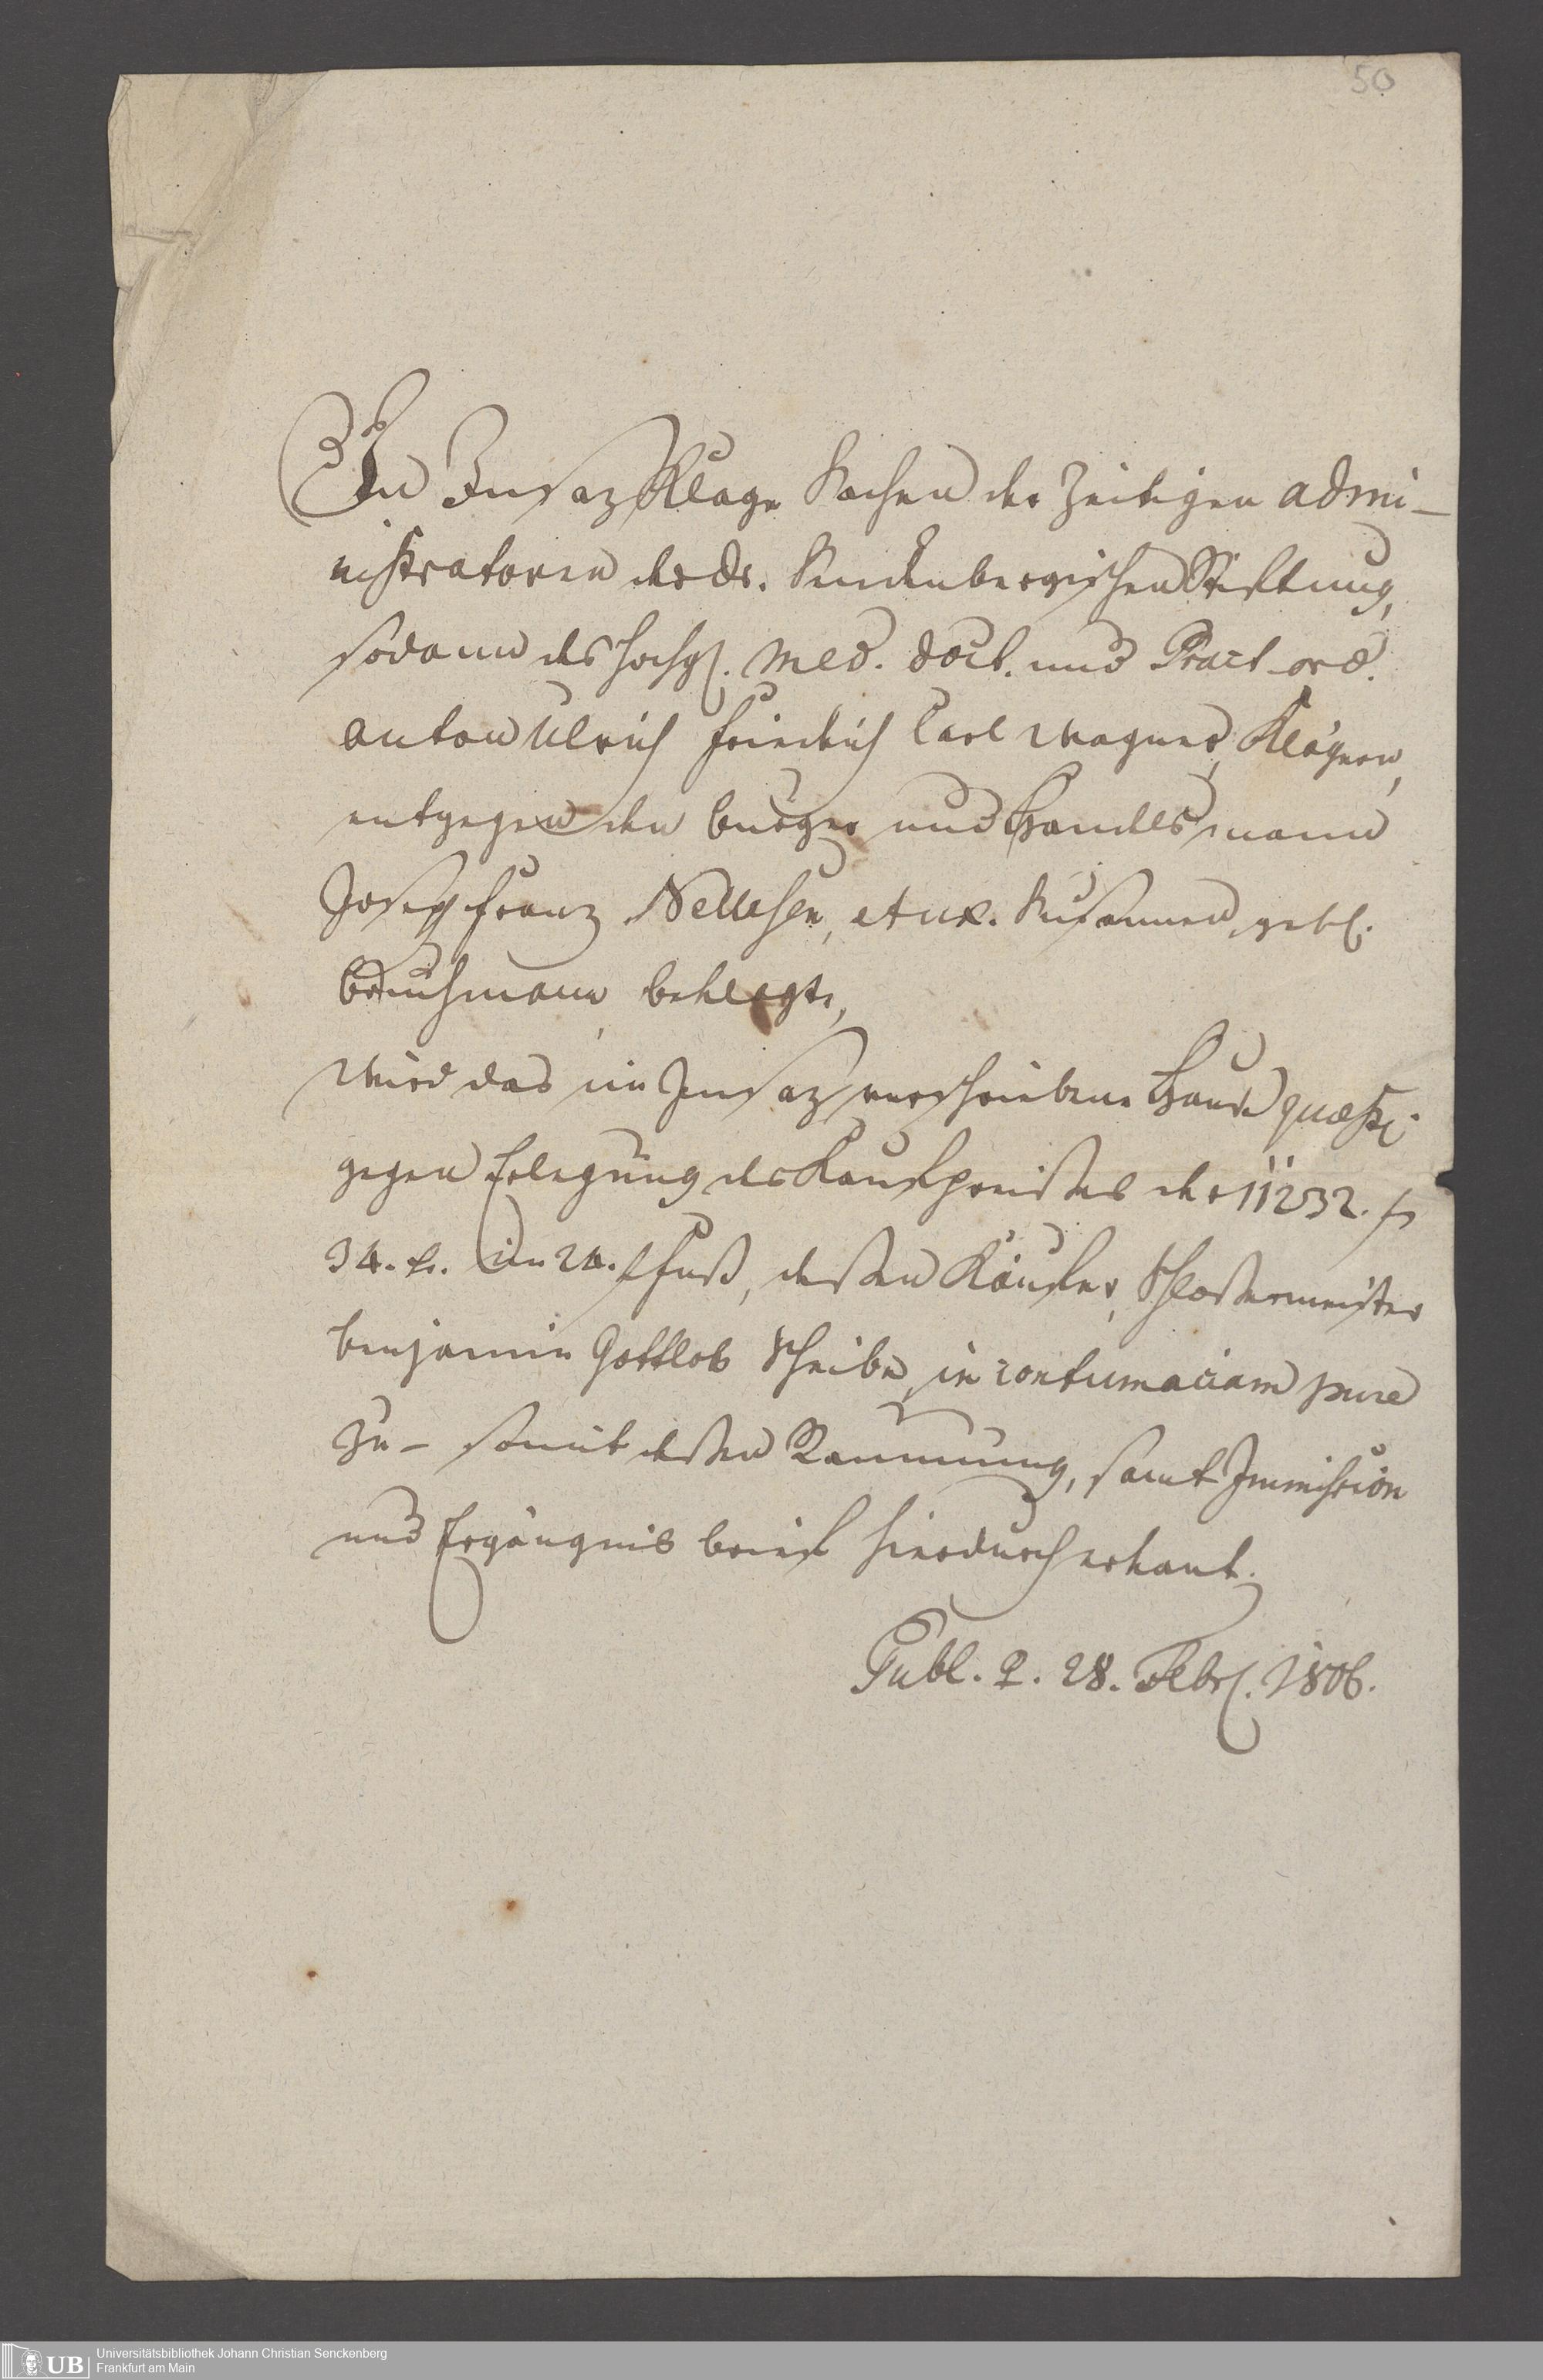 50
In Insaz Klage Sachen der Zeitigen admi-
nistratoren der Dr. Senckenbergischen Stiftung,
sodann des hochgl. Med. Doct. und Pract. ord.
Anton Ulrich Friedrich Carl Wagner, Klägern,
entgegen den Burger und Handelsmann
Joseph Franz Nellessen, et ux. Susannen, gebl.
Bruchmann, beklagte,
wird das im Insaz verschriebene Hauß quæst.
gegen Erlegung des Kaufspreißes der 11232. f
34. kr. im 24. f fuß, deßen Käufer, Schloßermeister
Benjamin Gottlob Scheibe, in contumaciam pure
zu- somit deßen Raumung, samt Immission
und Ergängnis brief hierdurch erkant.
Publ. 28. Febr. 1806.
UB
Universitätsbibliothek Johann Christian Senckenberg
Frankfurt am Main